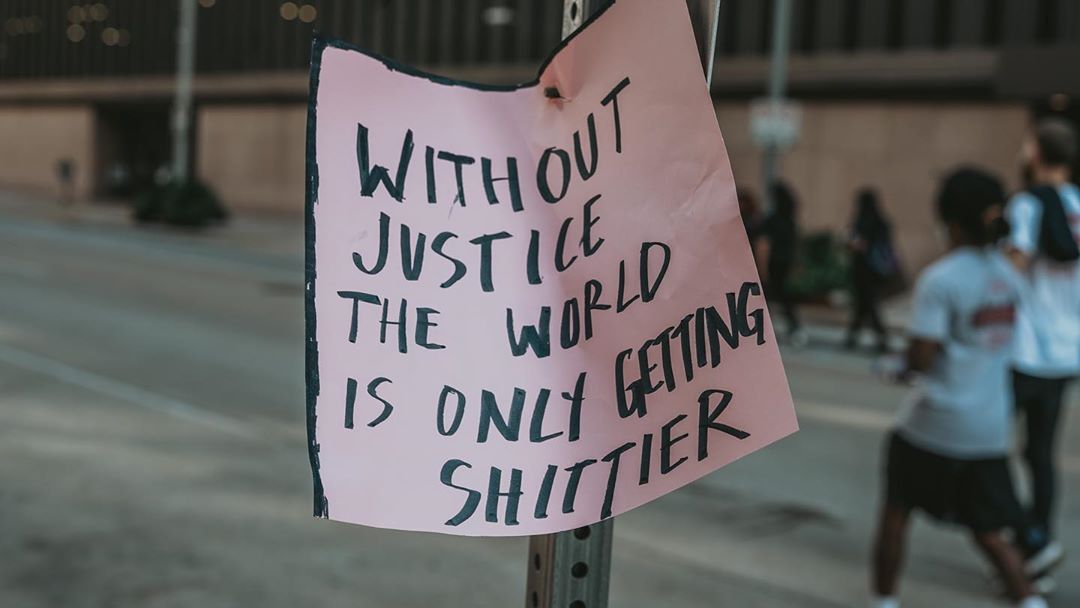 WITHOUT
JUSTICE
THE WORLD
IS ONLY GETTING
SHITTIER